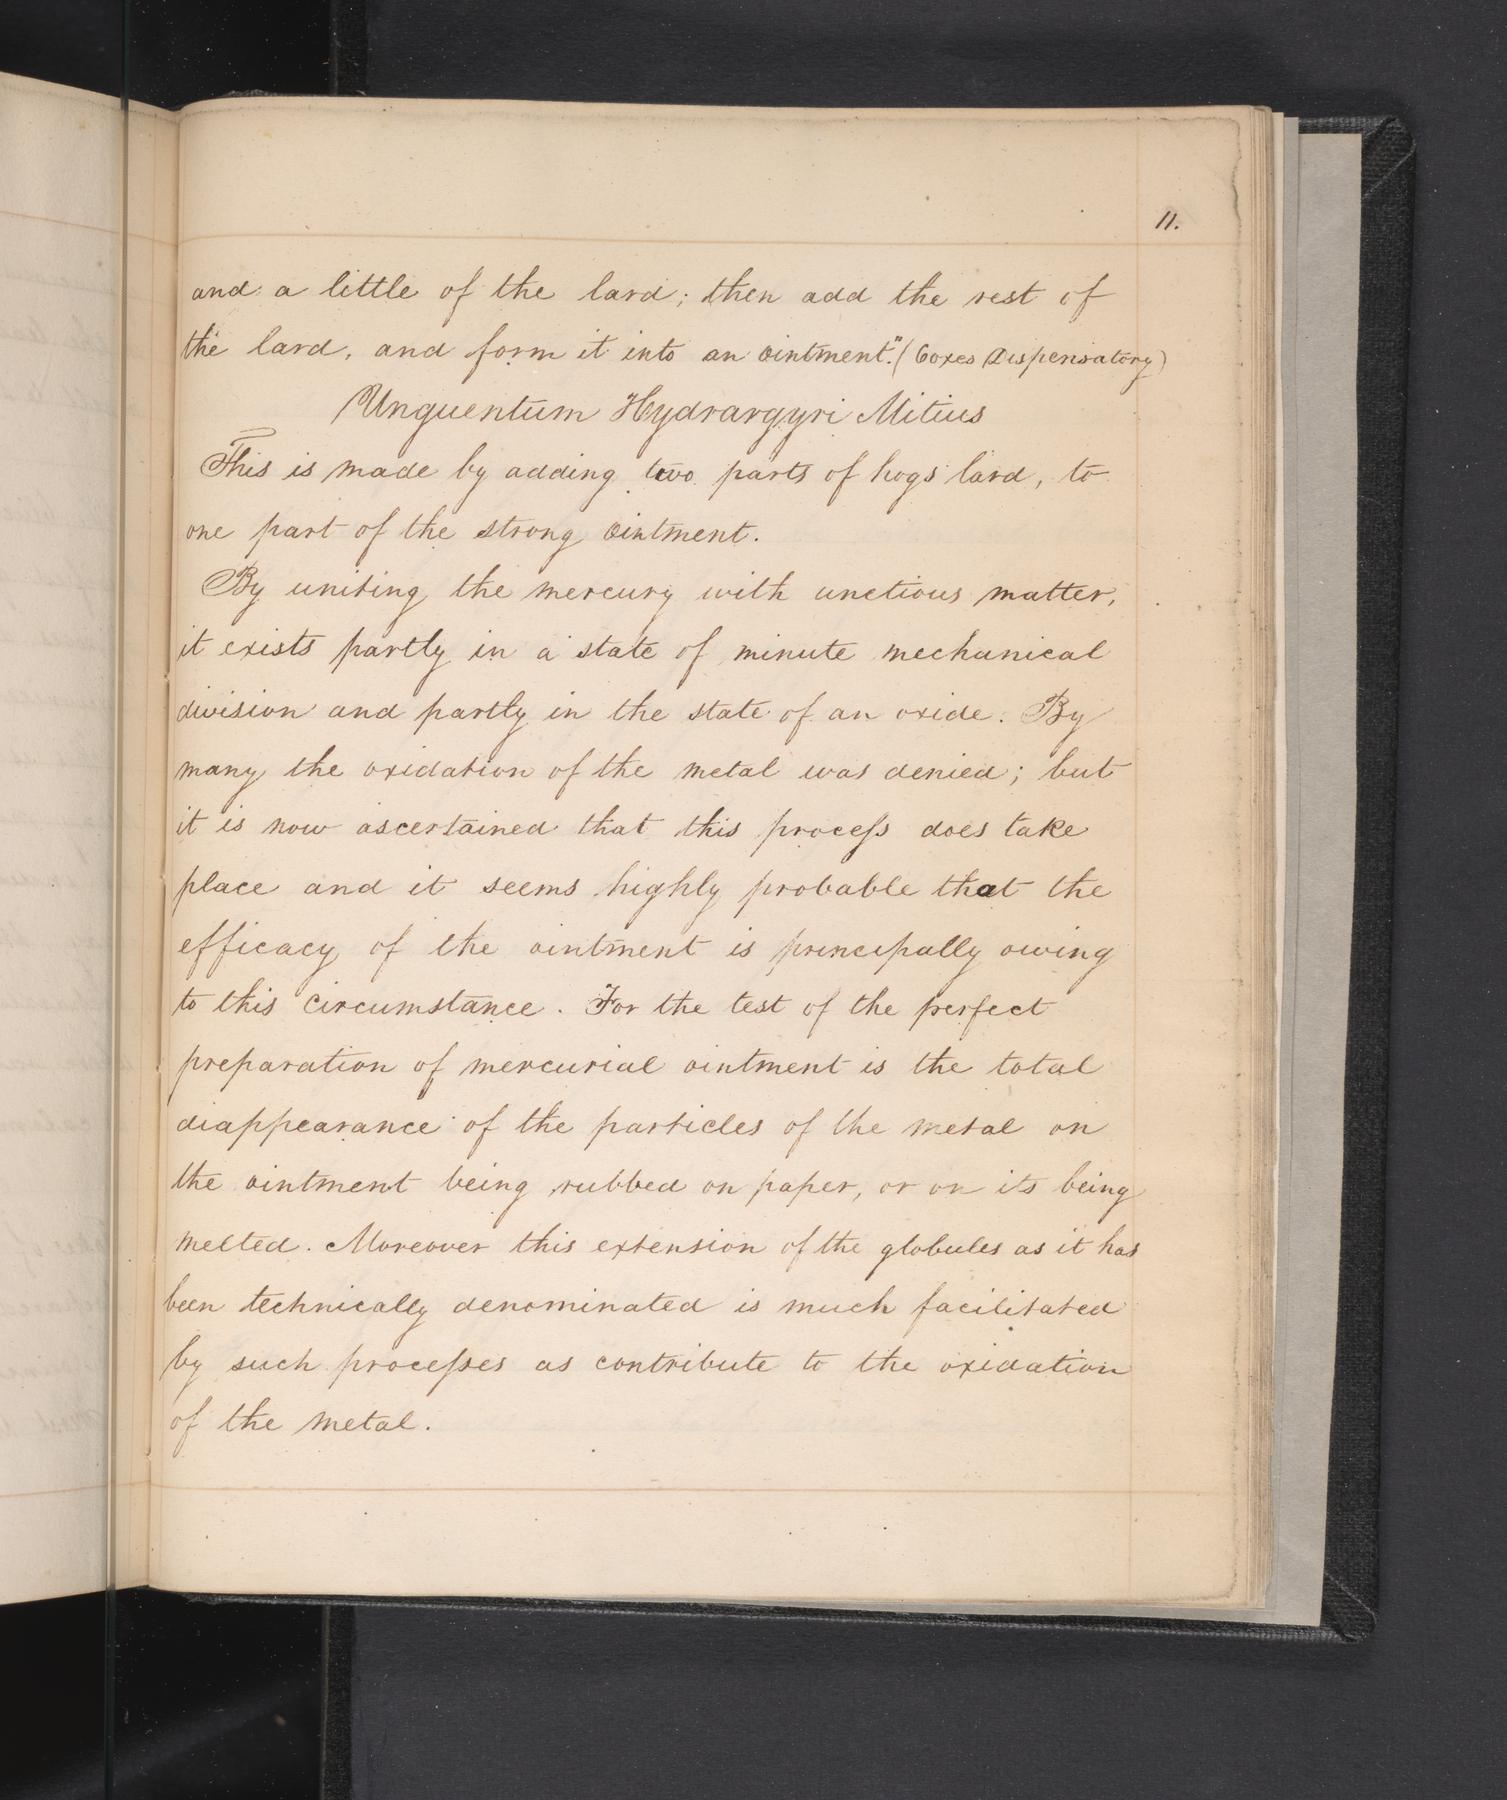 11.
and a little of the lard; then add the rest of
the lard, and form it into an ointment." (Coxes Dispensatory)
Unguentum Hydrargyri Mitius
This is made by adding two parts of hogs lard, to
one part of the strong ointment.
By uniting the mercury with unctious matter,
it exists partly in a state of minute mechanical
division and partly in the state of an oxide. By
many the oxidation of the metal was denied; but
it is now ascertained that this process does take
place and it seems highly probable that the
efficacy of the ointment is principally owing
to this circumstance. For the test of the perfect
preparation of mercurial ointment is the total
diappearance of the particles of the metal on
the ointment being rubbed on paper, or on its being
melted. Moreover this extension of the globules as it has
been technically denominated is much facilitated
by such processes as contribute to the oxidation
of the metal.